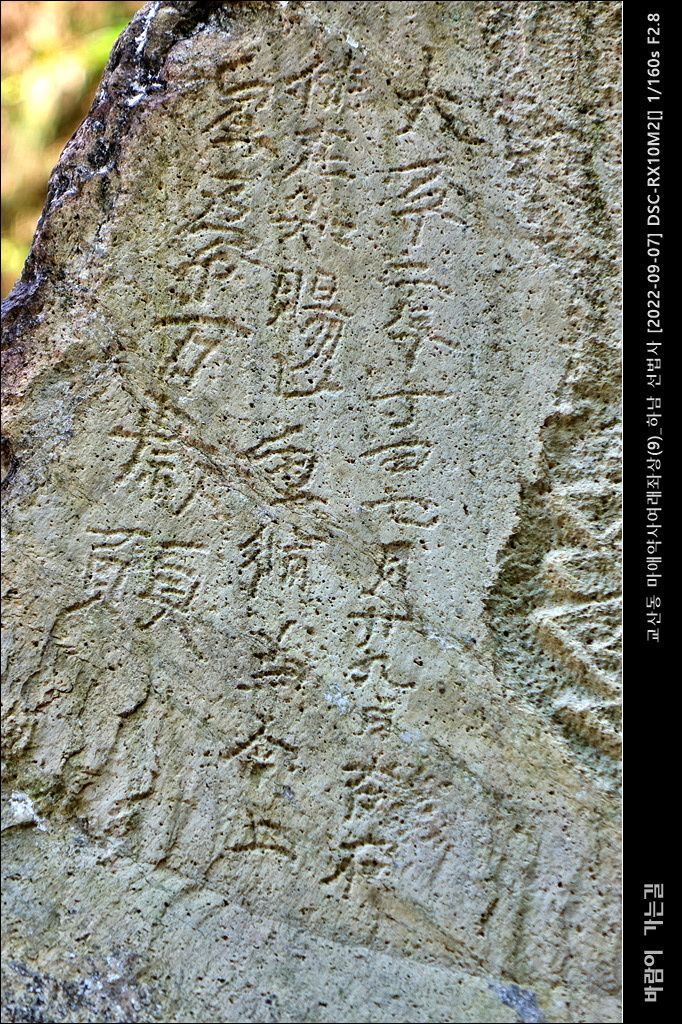 太平二年丁丑七月廿九日古石
佛在如賜乙重脩為今上
皇帝万歳願
교산동 마애약사여래좌상(9)_하남 선법사 [2022-09-07] DSC-RX10M2[] 1/160s F2.8
바람이 가는길